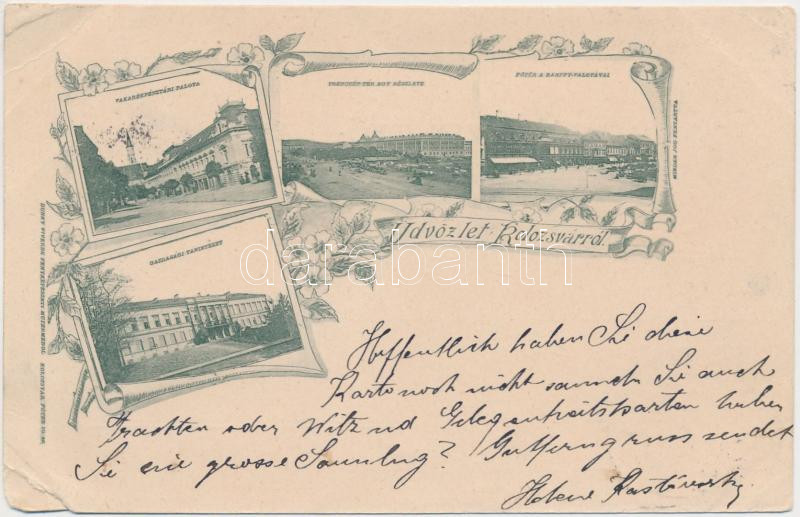 TAKARÉKPÉNZTÁRI PALOTA
TRENCSÉN-TÉR EGY RÉSZLETE
FŐTÉR A BÁNFFY-PALOTÁVAL
MINDEN JOG FENTARTVA
GAZDASÁGI-TANINTÉZET
Üdvözlet Kolozsvárról.
darabanth
Hoffentlich haben Sie diese
Karte noch nicht sammeln Sie auch
Trachten oder Witz und Gelegenheitskarten haben
Sie eine grosse Samlung? Gutferngruss sendet
Helene